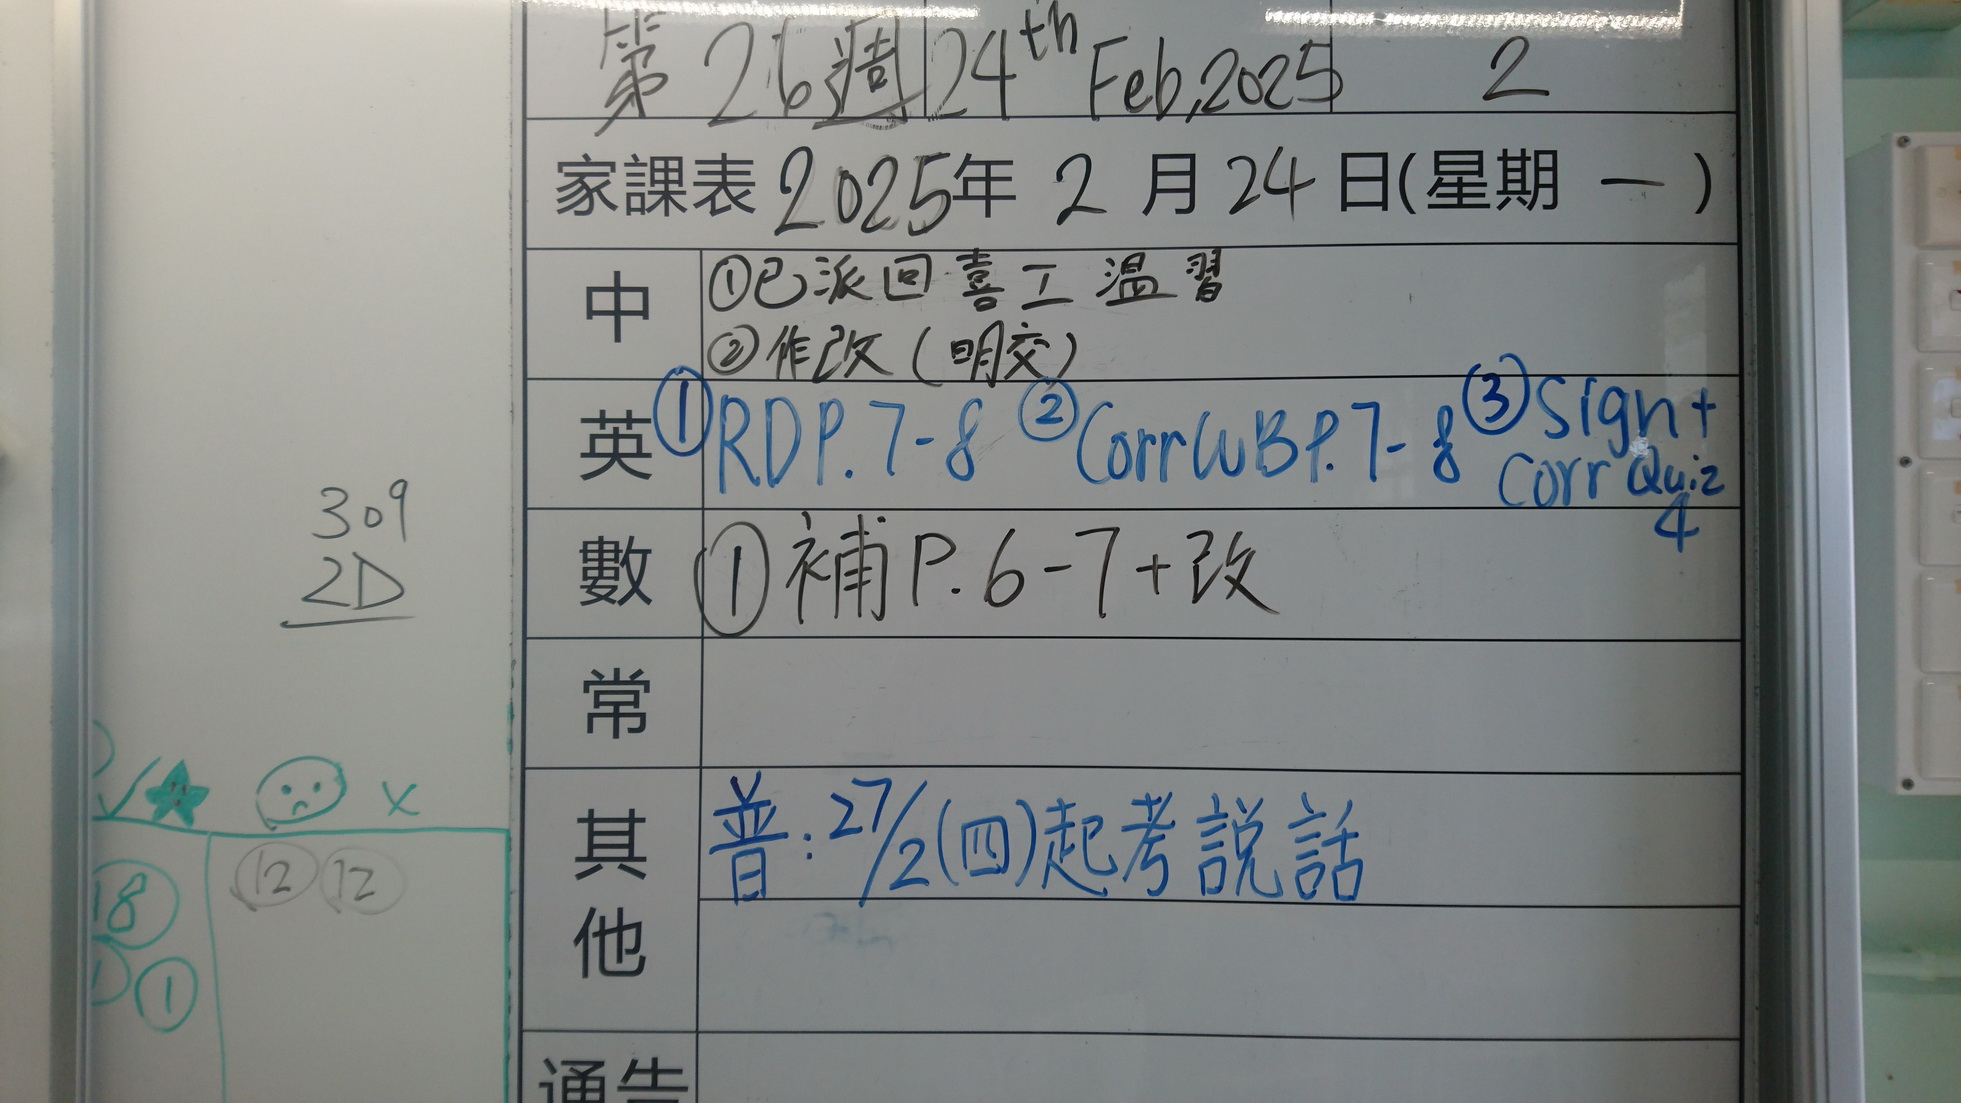 第26週 24th Feb,2025 2
家課表 2025年 2月24日(星期一)
中 ①已派回喜工溫習
②作改(明交)
英 ①RD P.7-8 ②Corr WB P.7-8 ③Sign+
Corr Quiz
4
數 ①補P.6-7+改
常
其他 普:27/2(四)起考説話
通告
309
2D
✓ ★ x
18 12 12
1 1